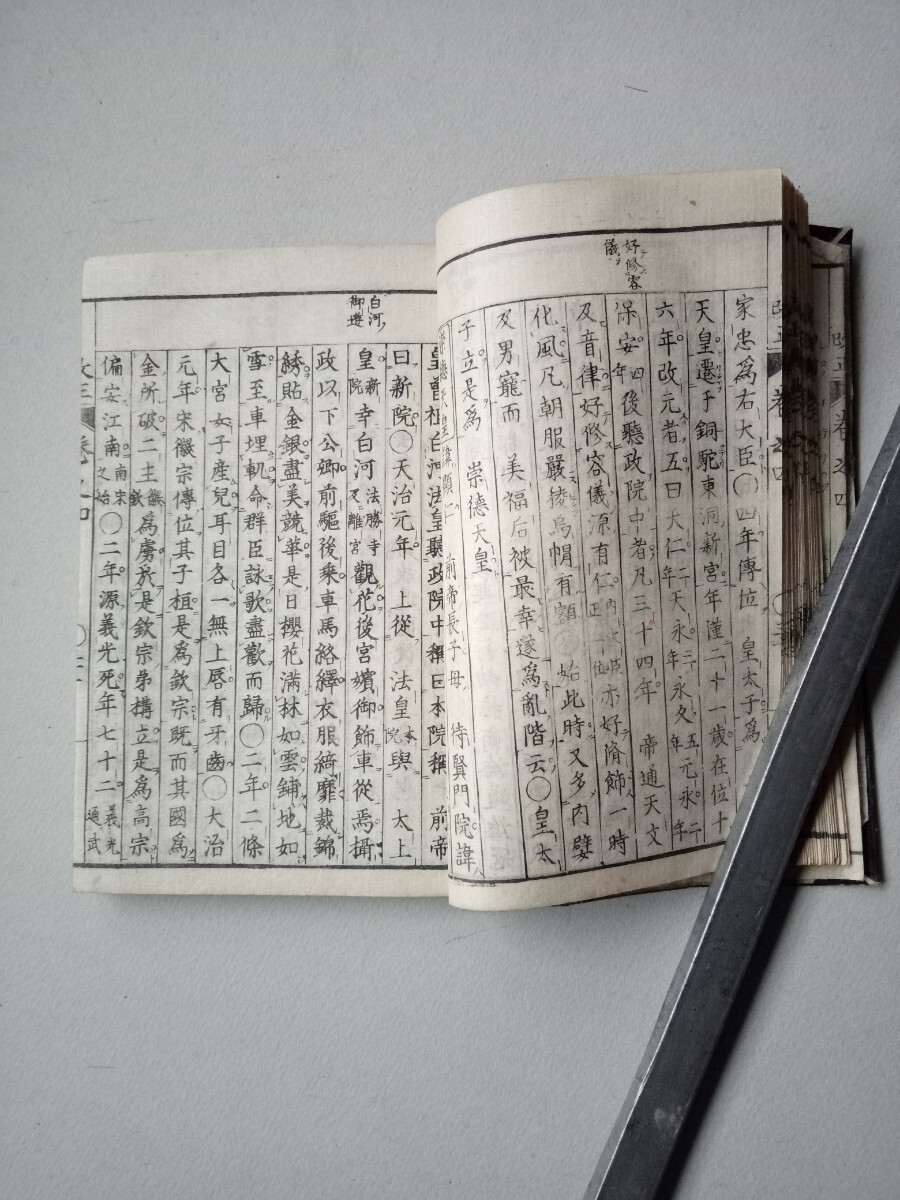 好修容
儀
家忠爲右大臣〇四年傳位 皇太子爲
天皇遷于銅駝東洞新宮年僅二十一歲在位十
六年改元者五曰大仁二年天永三年永久五年元永二年
保安四年後聽政院中者凡三十四年 帝通天文
及音律好修容儀源有仁 亦好脩飾一時
化風凡朝服嚴綾烏帽有額〇始此時又多内嬖
及男寵而 美福后被最幸遂爲亂階云〇皇太
子立是爲 崇德天皇
前帝長子母 待賢門院諱
皇曾祖白河法皇聽政院中稱曰本院稱 前帝
白河
御遊
曰新院〇天治元年 上從 法皇本院與 太上
皇新院幸白河法勝寺及離宮觀花後宮嬪御飾車從焉攝
政以下公卿前驅後乘車馬絡繹衣服綺靡裁錦
綉貼金銀盡美競華是日櫻花滿林如雲鋪地如
雪至車埋軌命群臣詠歌盡歡而歸〇二年二條
大宮女子産兒耳目各一無上唇有牙齒〇大治
元年宋徽宗傳位其子桓是爲欽宗既而其國爲
金所破二主徽欽爲虜於是欽宗弟構立是爲高宗
偏安江南南宋之始〇二年源義光死年七十二義光通武